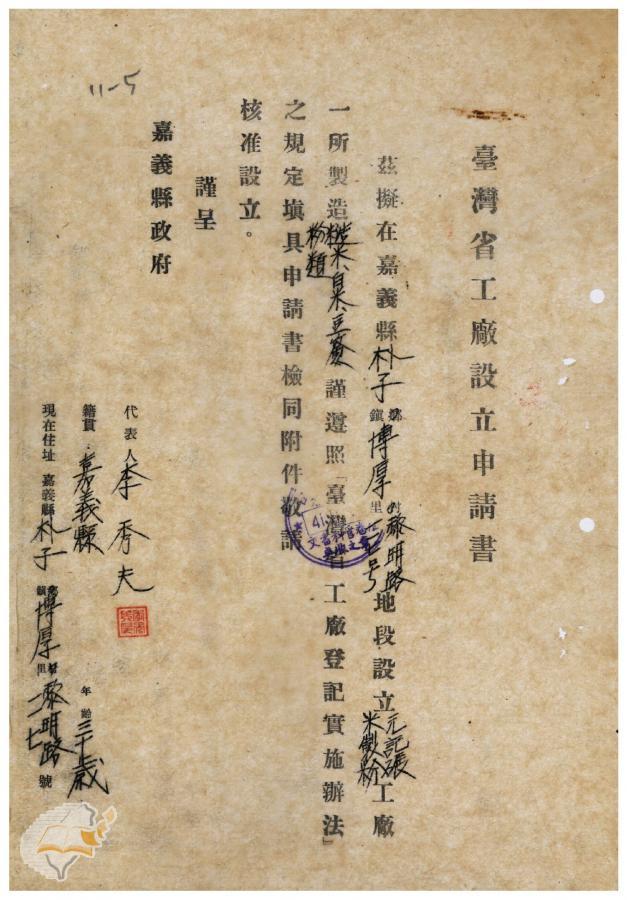 11-5
臺灣省工廠設立申請書
茲擬在嘉義縣朴子鄉鎮博厚村里黎明路二七号地段設立元記碾米製粉工廠
一所製造糙米、白米、豆簽粉類謹遵照「臺灣省工廠登記實施辦法」
之規定填具申請書檢同附件敬請
核准設立。
謹呈
嘉義縣政府
代表人李秀夫
年齡三十歲
籍貫:嘉義縣
現在住址 嘉義縣朴子鄉鎮博厚村里黎明路二七號
41.